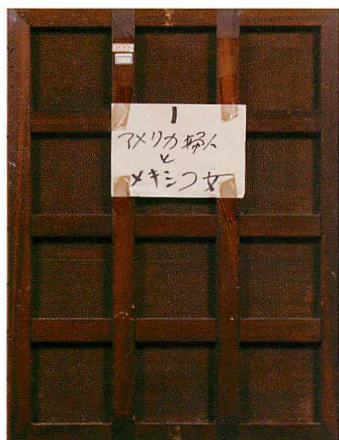 1
アメリカ婦人
と
メキシコ女